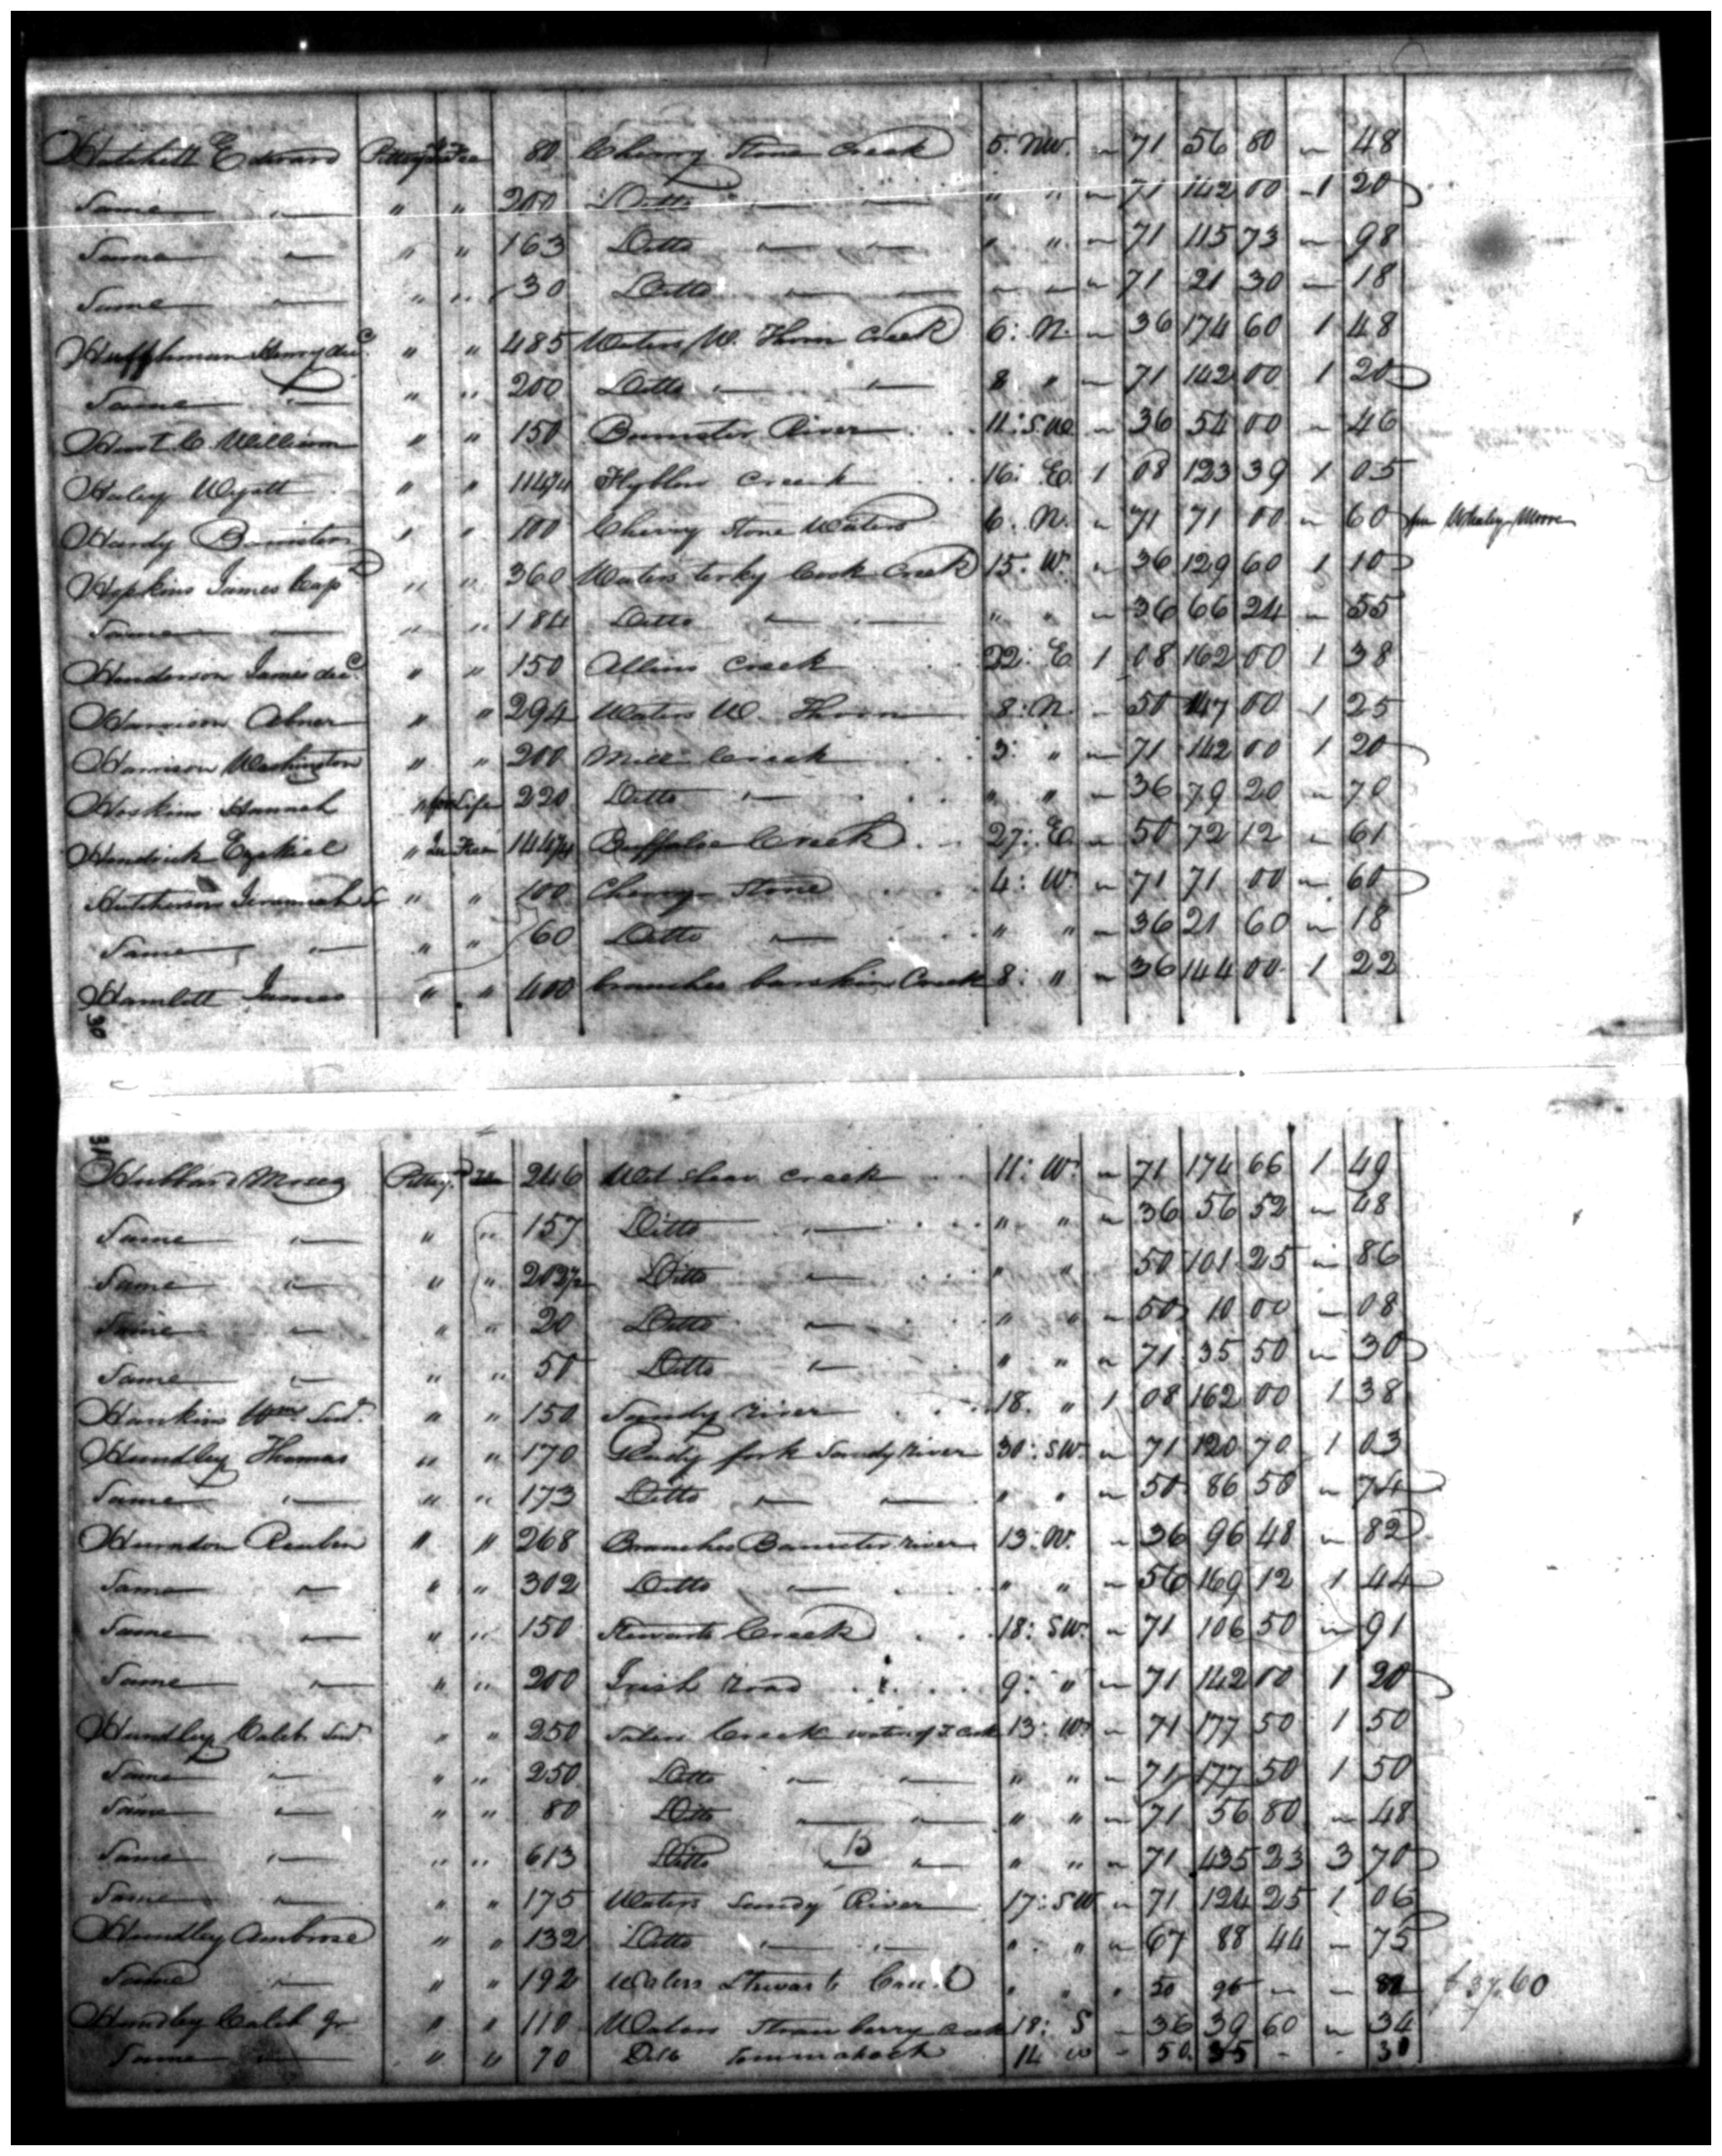 Hatchett Edward Pittsyl in Fee 80 Cherry Stone Creek 5: NW. " 71 56 80 " 48
Same — " " 200 Ditto — — " " " 71 142 00 1 20
Same — " " 163 Ditto — — " " " 71 115 73 " 98
Same — " " 30 Ditto — — " " " 71 21 30 " 18
Huffhman Henry decd. " " 485 Waters W. Thorn Creek 6: N. " 36 174 60 1 48
Same — " " 200 Ditto — — 8 " " 71 142 00 1 20
Hunt C William " " 150 Bannister River 11: SW " 36 54 00 " 46
Haley Wyatt " " 114 1/4 Flyblow Creek 16: E. 1 08 123 39 1 05
Hardy Bannister " " 100 Cherry Stone Waters 6. N. " 71 71 00 " 60 Whaley Moore
Hopkins James Cap " " 360 Waters turky Cock Creek 15: W. " 36 129 60 1 10
Same — " " 184 Ditto — — " " " 36 66 24 " 55
Henderson James decd. " " 150 Allins Creek 22: E 1 08 162 00 1 38
Harrison Abner " " 294 Waters W. Thorn 8: N. " 50 147 00 1 25
Harrison Washington " " 200 Mill Creek 3: " " 71 142 00 1 20
Hoskins Hannah " for Life 220 Ditto — " " " 36 79 20 " 70
Hendrick Ezekiel " In Fee 144 1/4 Buffaloe Creek 27: E. " 50 72 12 " 61
Hutcherson Jeremiah " " 100 Cherry Stone 4: W. " 71 71 00 " 60
Same — " " 60 Ditto — " " " 36 21 60 " 18
Hamlett James " " 400 branches Banskin Creek 8: " " 36 144 00 1 22
30
31
Hubbard Moses Pittsy. Fee 246 Wet Sleav Creek 11: W. " 71 174 66 1 49
Same — " " 157 Ditto — " " " 36 56 52 " 48
Same — " " 202 1/2 Ditto — " " 50 101 25 " 86
Same — " " 20 Ditto — " " " 50 10 00 " 08
Same — " " 50 Ditto — " " " 71 35 50 " 30
Hankins Wm. Snr. " " 150 Sandy river 18. " 1 08 162 00 1 38
Hundley Thomas " " 170 Glady fork Sandy river 30: SW. " 71 120 70 1 03
Same — " " 173 Ditto — — " " " 50 86 50 " 74
Hurndon Reuben " " 268 Branches Bannister river 13: W. " 36 96 48 " 82
Same — " " 302 Ditto — " " " 56 169 12 1 44
Same — " " 150 Stewarts Creek 18: SW. " 71 106 50 " 91
Same — " " 200 Irish road 9: " " 71 142 00 1 20
Hundley Caleb Snr " " 250 Creek waters of 13: W. " 71 177 50 1 50
Same — " " 250 Ditto — — " " " 71 177 50 1 50
Same — " " 80 Ditto — " " " 71 56 80 " 48
Same — " " 613 Ditto — — " " " 71 435 23 3 70
Same — " " 175 Waters Sandy River 17: SW " 71 124 25 1 06
Hundley Ambrose " " 132 Ditto — — " " " 67 88 44 — 75
Same — " " 192 Waters Stewarts " " " 50 96 — — 82 $37.60
Hundley Caleb Jr " " 110 Waters Straw berry Creek 18: S — 36 39 60 " 34
Same — " " 70 Ditto Tommahock 14 W — 50 35 - - 30